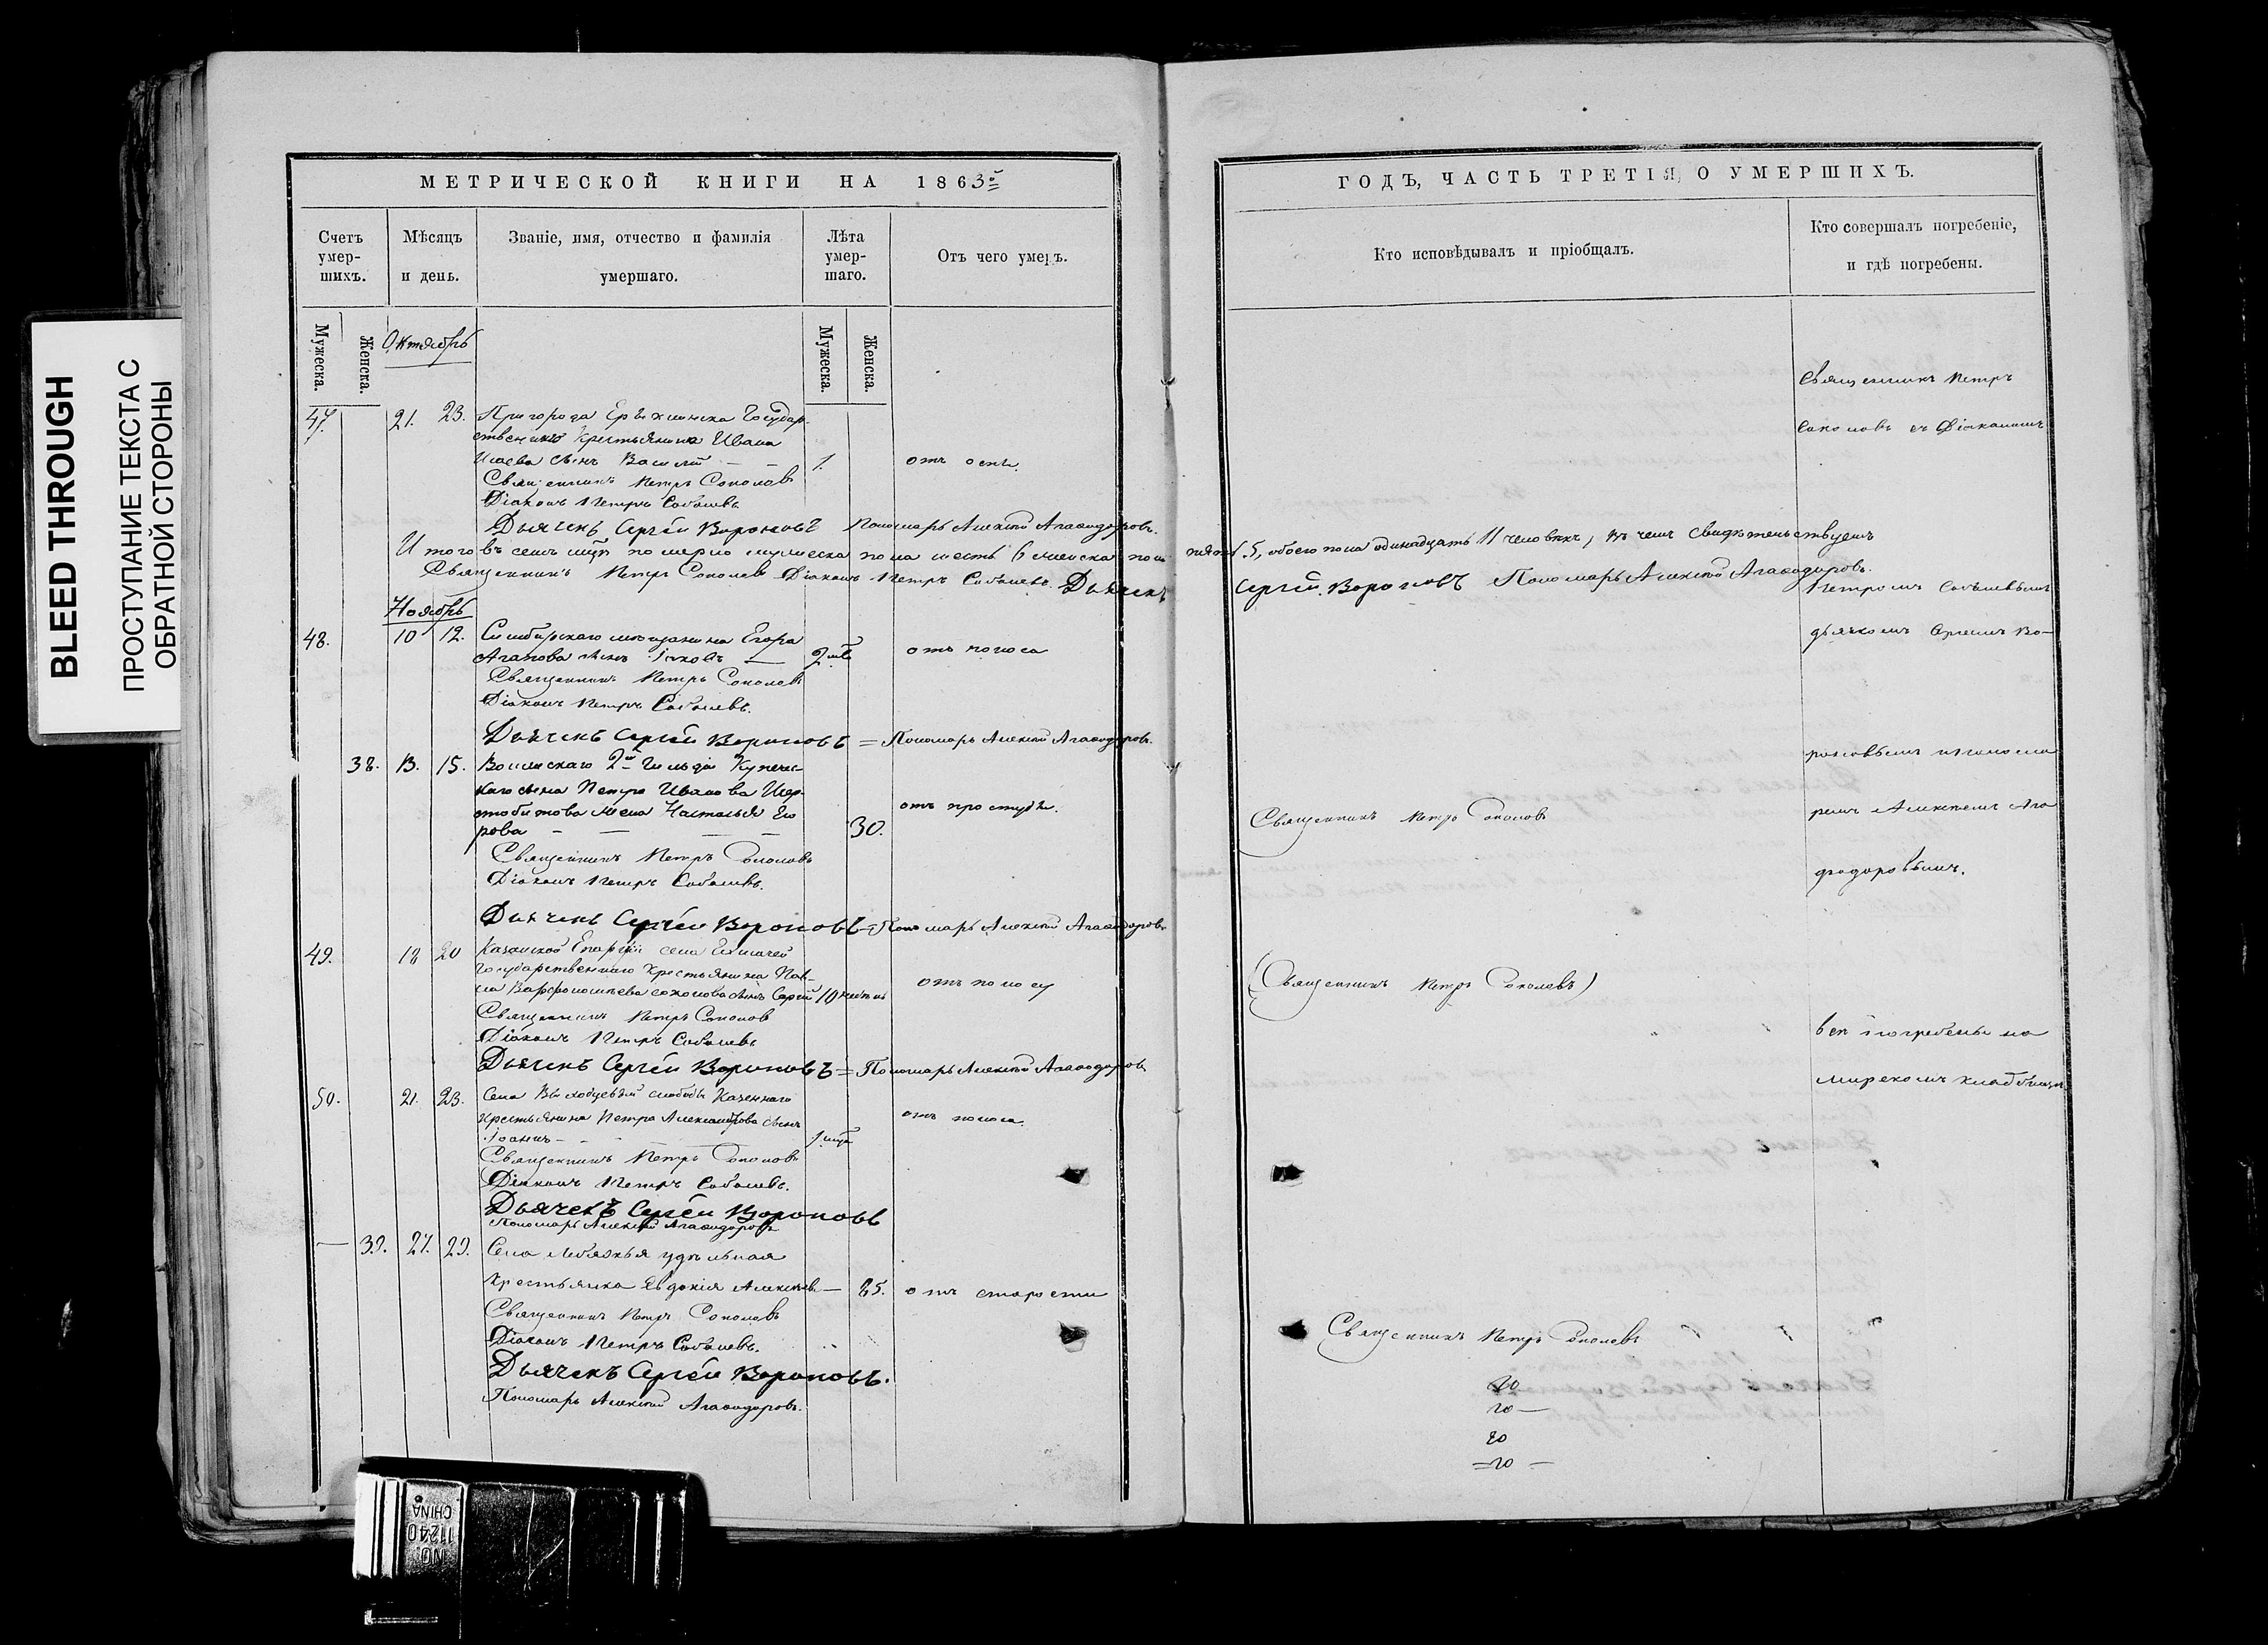 BLEED THROUGH
ПРОСТУПАНИЕ ТЕКСТА С
ОБРАТНОЙ СТОРОНЫ
МЕТРИЧЕСКОЙ КНИГИ НА 1863й
Счетъ умер-шихъ.
Мѣсяцъ и день.
Званіе, имя, отчество и фамилія умершаго.
Лѣта умер-шаго.
Отъ чего умеръ.
Мужеска.
Женска.
Мужеска.
Женска.
Октябрь
47. 21. 23. Пригорода Ерыклинска Государ-
ственнаго Крестьянина Ивана
Исаева сынъ Василій — — 1. отъ оспы.
Священникъ Петръ Соколовъ
Діаконъ Петръ Соболевъ
Дьячекъ Сергѣй Вороновъ Пономарь Алексѣй Агаѳодоровъ.
Итого въ семъ мцѣ померло мужеска пола шесть 6 женска пола пять 5, обоего пола одинадцать 11 человѣкъ, въ чемъ свидѣтельствуемъ
Священникъ Петръ Соколовъ Діаконъ Петръ Соболевъ. Дьячекъ Сергѣй Вороновъ Пономарь Алексѣй Агаѳодоровъ.
Ноябрь
48. 10 12. Симбирскаго мѣщанина Егора
Агапова сынъ Іаковъ — 2 отъ поноса
Священникъ Петръ Соколовъ
Діаконъ Петръ Соболевъ.
Дьячекъ Сергѣй Вороновъ = Пономарь Алексѣй Агаѳодоровъ.
38. 13. 15. 2й Гильдіи Купечес-
каго сына Петра Иванова
жена Настасья Его
рова — — — — 30. отъ простуды.
Священникъ Петръ Соколовъ
Діаконъ Петръ Соболевъ.
Дьячекъ Сергѣй Вороновъ = Пономарь Алексѣй Агаѳодоровъ
49. 18 20 Казанской Епархіи села
Государственнаго Крестьянина Пав-
ла Варфоломѣева сынъ Сергѣй 10 отъ поносу
Священникъ Петръ Соколовъ
Діаконъ Петръ Соболевъ
Дьячекъ Сергѣй Вороновъ = Пономарь Алексѣй Агаѳодоровъ
50. 21. 23. Села слободы Казеннаго
крестьянина Петра Александрова сынъ
Іоаннъ — 1 отъ поноса.
Священникъ Петръ Соколовъ
Діаконъ Петръ Соболевъ.
Дьячекъ Сергѣй Вороновъ
Пономарь Алексѣй Агаѳодоровъ
— 39. 27. 29. Села Лебяжья удѣльная
крестьянка Евдокія Алексѣева — 85. отъ старости
Священникъ Петръ Соколовъ
Діаконъ Петръ Соболевъ.
Дьячекъ Сергѣй Вороновъ.
Пономарь Алексѣй Агаѳодоровъ.
ГОДЪ, ЧАСТЬ ТРЕТІЯ, О УМЕРШИХЪ.
Кто исповѣдывалъ и пріобщалъ.
Кто совершалъ погребеніе, и гдѣ погребены.
Священникъ Петръ
Соколовъ съ Діакономъ
Петромъ Соболевымъ
дьячкомъ Сергѣемъ Во-
роновымъ и понома
ремъ Алексѣемъ Ага
ѳодоровымъ.
Священникъ Петръ Соколовъ
(Священникъ Петръ Соколовъ)
всѣ погребены на
мирскомъ кладбищѣ
Священникъ Петръ Соколовъ
20
20 —
20
=20 —
NO.
11240
CHINA